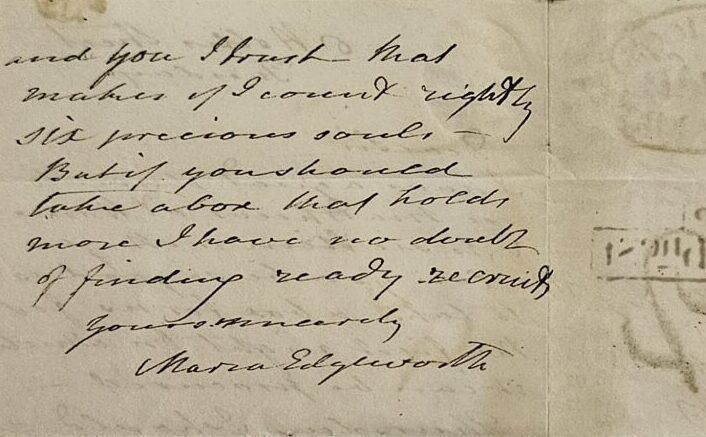 and you I trust that
makes if I count rightly
six precious souls –
But if you should
take a box that holds
more I have no doubt
of finding ready recruits
yours sincerely
Maria Edgeworth